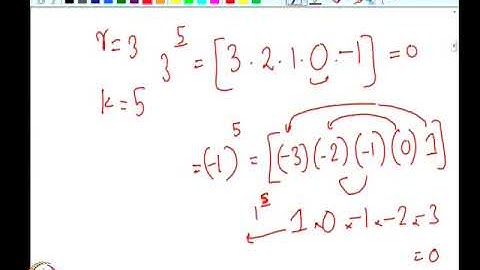 r=3
3^5 = [3·2·1·0·-1] = 0
k=5
= (-1)^5 = [(-3)(-2)(-1)(0) 1]
1^5
1×0×-1×-2×-3
=0